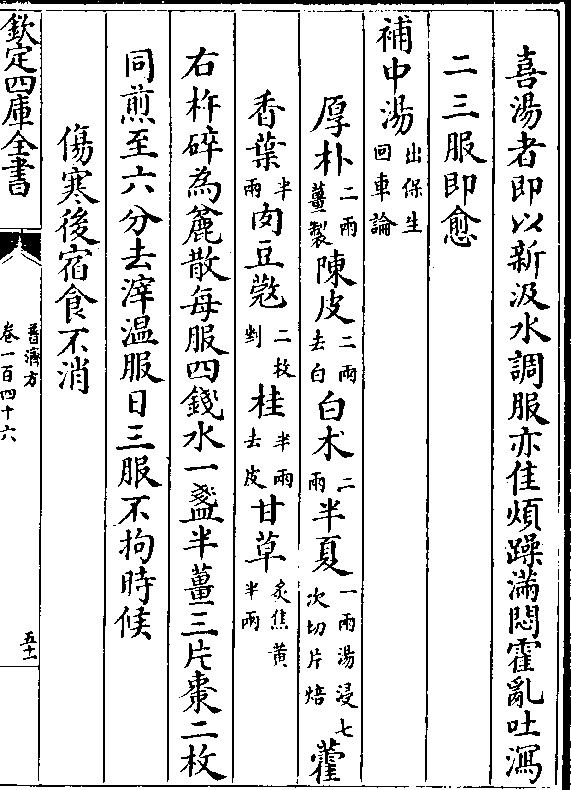 喜湯者即以新汲水調服亦佳煩躁滿悶霍亂吐瀉
二三服即愈
補中湯出保生回車論
厚朴二兩薑製陳皮二兩去白白术二兩半夏一兩湯浸七次切片焙藿
香葉半兩肉豆蔲二枚剉桂半兩去皮甘草炙焦黄半兩
右杵碎為麄散每服四錢水一盞半薑三片棗二枚
同煎至六分去滓温服日三服不拘時候
傷寒後宿食不消
欽定四庫全書
普濟方
卷一百四十六
五十一